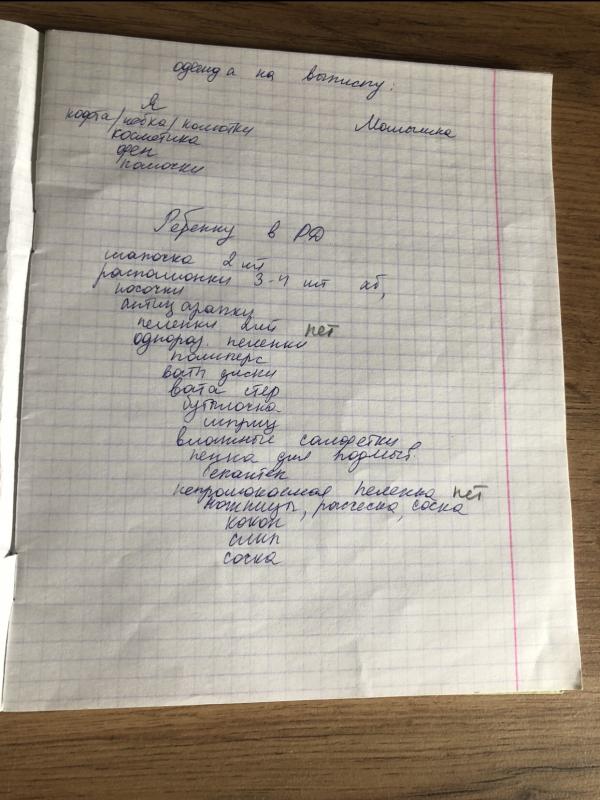 одежда на выписку:
Я
кофта/юбка/колготки
Малышка
косметика
фен
тапочки
Ребенку в РД
шапочка 2 шт
распашонки 3-4 шт хб,
носочки
антицарапки
пеленки 2шт нет
однораз. пеленки
памперс
ватн диски
вата стер
бутылочка
шприц
влажные салфетки
пенка для подмыв.
бепантен
непромокаемая пеленка нет
ножницы, расческа, соска
кокон
слип
соска